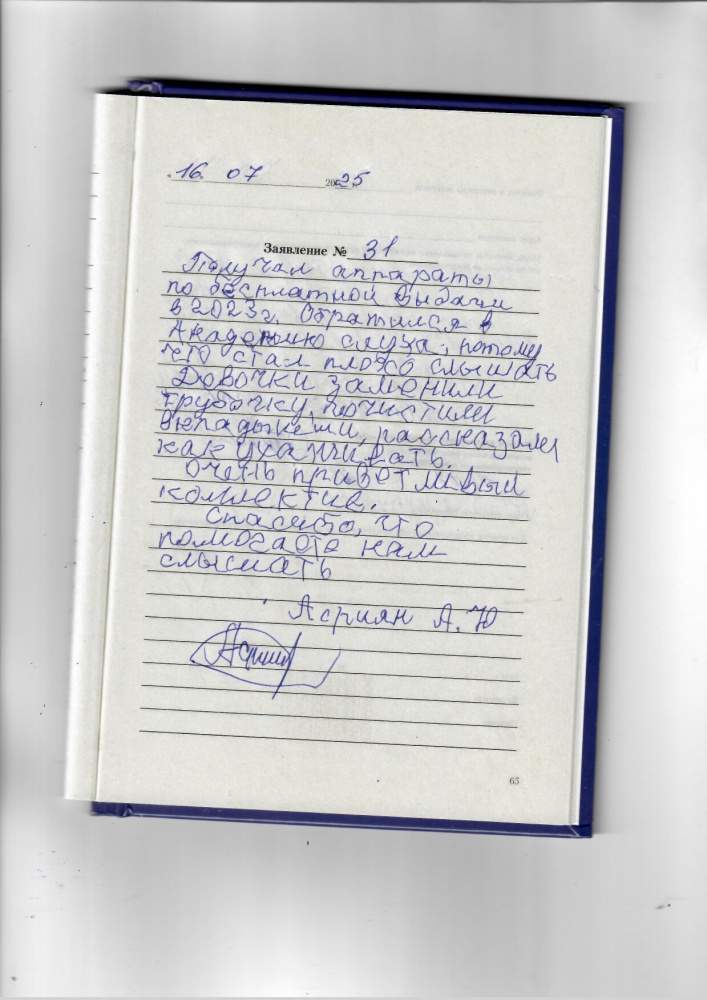 16. 07 2025
Заявление № 31
Получал аппараты
по бесплатной выдачи
в 2023г. Обратился в
Академию слуха, потому
что стал плохо слышать
Довочки заменили
трубочку, почистили
вкладыши, рассказали
как ухаживать.
Очень приветливый
коллектив.
Спасибо, что
помогаете нам
слышать
Асриян А. Ю
65